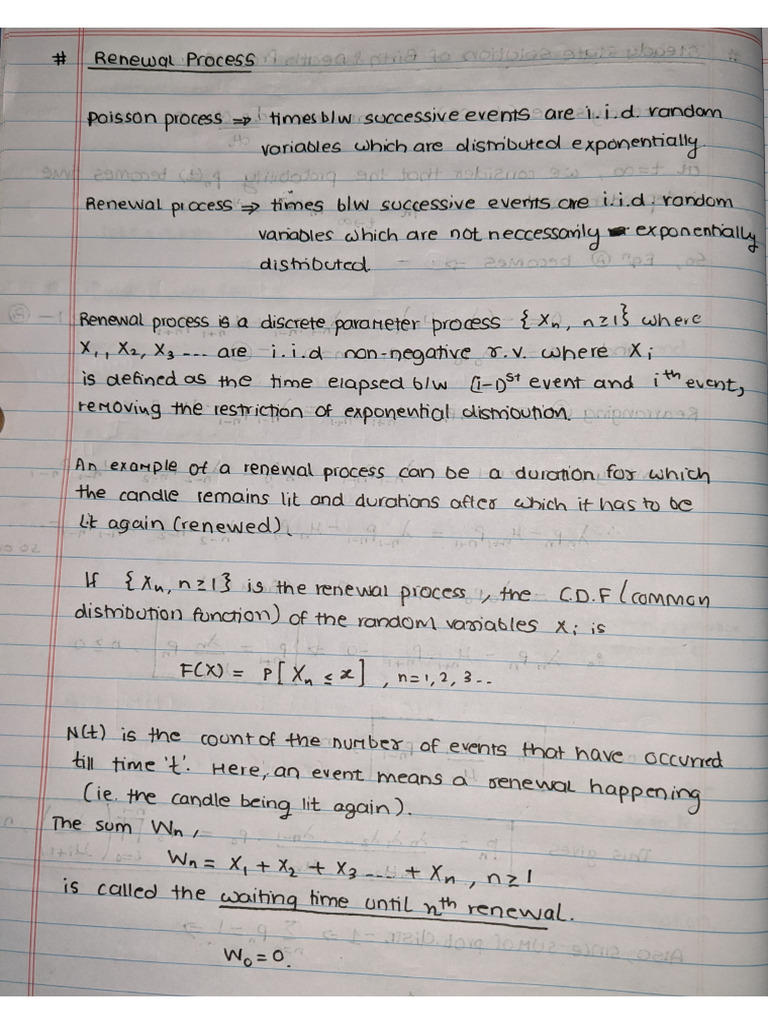 # Renewal Process
Poisson process ⇒ times b/w successive events are i.i.d. random
variables which are distributed exponentially.
Renewal process ⇒ times b/w successive events are i.i.d. random
variables which are not neccessarily exponentially
distributed.
Renewal process is a discrete parameter process {Xn, n≥1} where
X1, X2, X3 ---- are i.i.d non-negative r.v. where Xi
is defined as the time elapsed b/w (i-1)st event and ith event,
removing the restriction of exponential distribution.
An example of a renewal process can be a duration for which
the candle remains lit and durations after which it has to be
lit again (renewed).
If {Xn, n≥1} is the renewal process, the C.D.F (common
distribution function) of the random variables Xi is
F(X) = P[Xn ≤ x], n=1,2,3--
N(t) is the count of the number of events that have occurred
till time 't'. Here, an event means a renewal happening
(ie. the candle being lit again).
The sum Wn,
Wn = X1 + X2 + X3 ---- + Xn, n≥1
is called the waiting time until nth renewal.
W0 = 0.